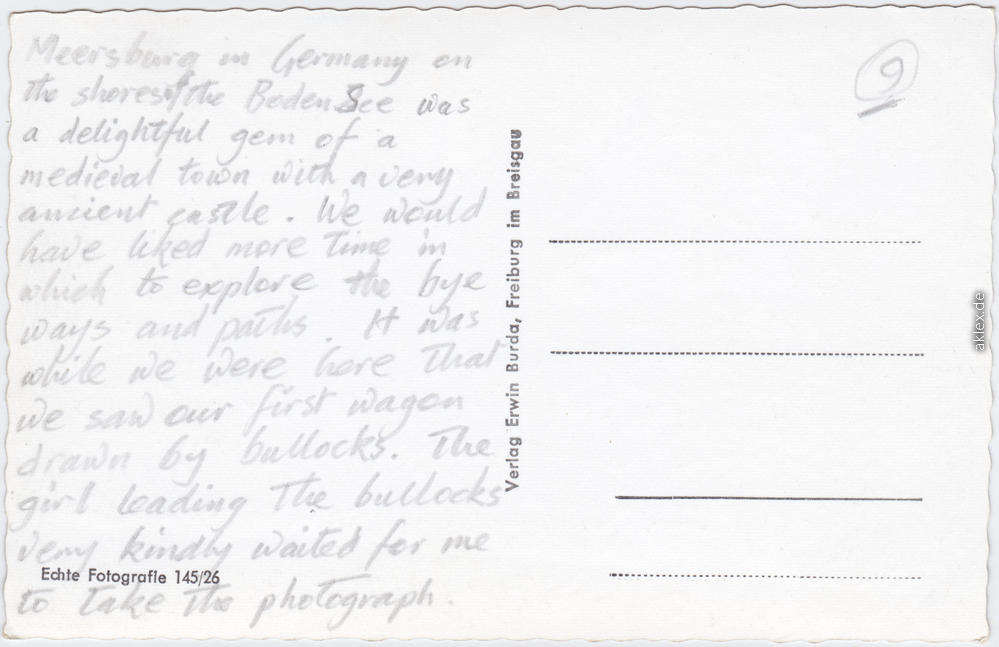 Meersburg in Germany on
the shores of the Boden See was
a delightful gem of a
medieval town with a very
ancient castle. We would
have liked more time in
which to explore the bye
ways and paths. It was
while we were here that
we saw our first wagon
drawn by bullocks. The
girl leading the bullocks
very kindly waited for me
to take the photograph.
Echte Fotografie 145/26
Verlag Erwin Burda, Freiburg im Breisgau
9
aklex.de